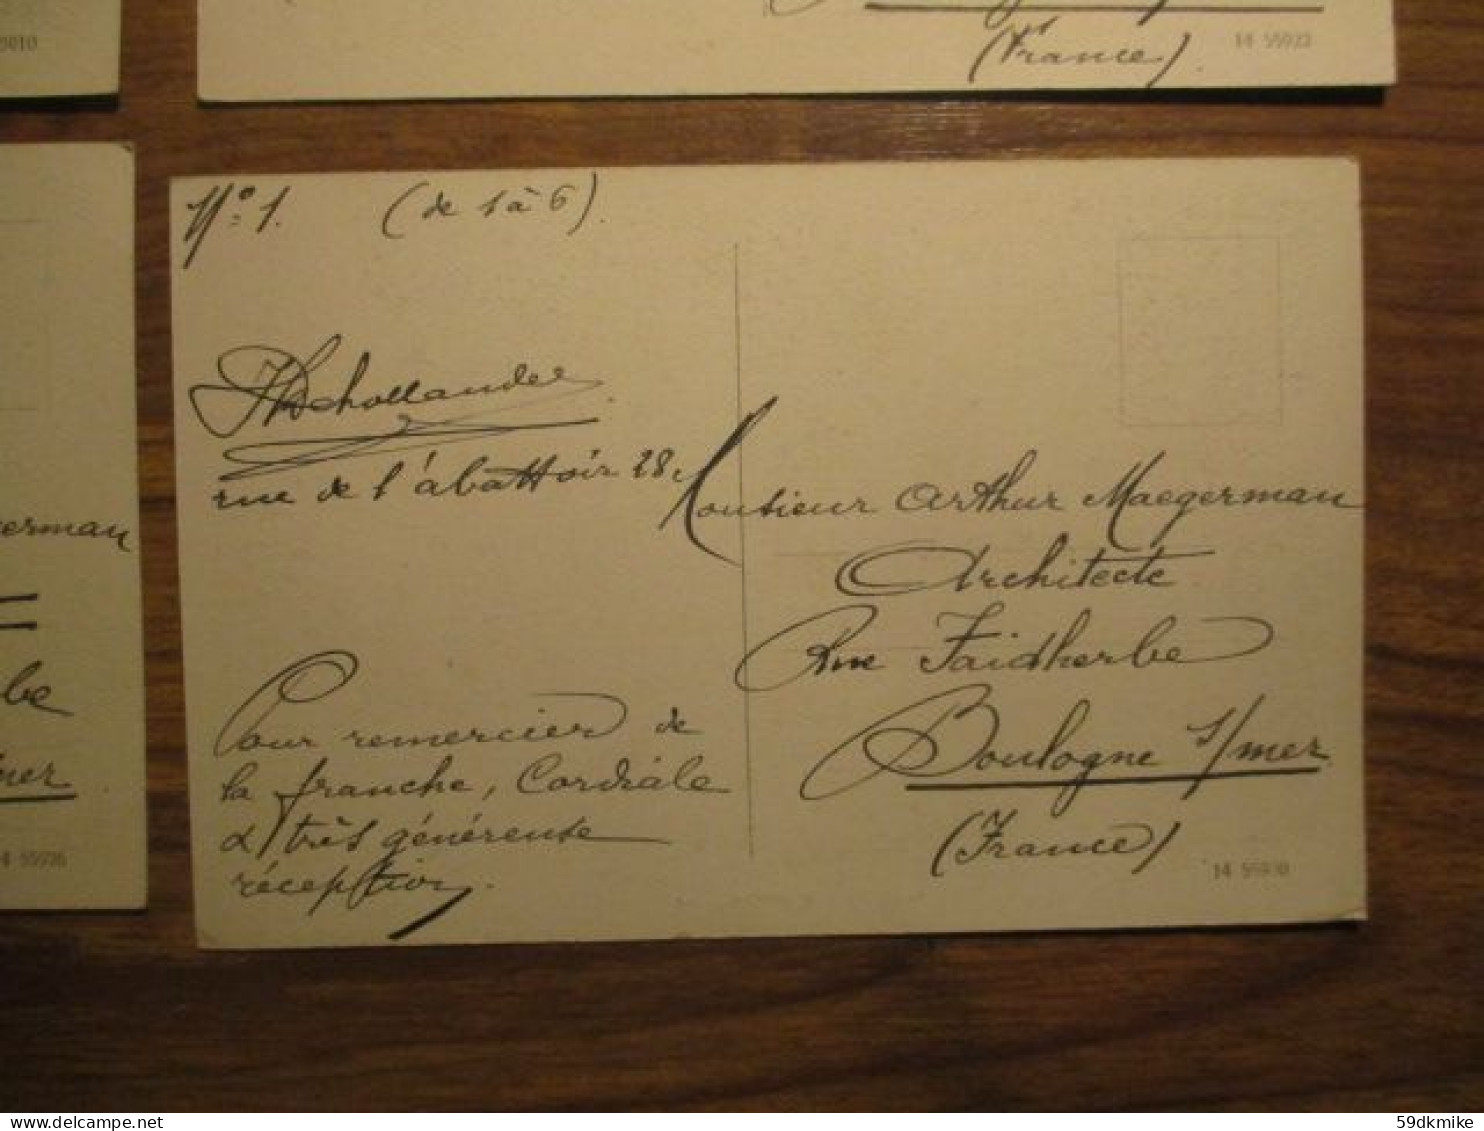 5010
(France)
14 55923
N° 1. (de 1 à 6).
Dehollander
rue de l'abattoir 28
Pour remercier de
la franche, Cordiale
& très généreuse
réception.
Monsieur Arthur Maegerman
Architecte
Rue Faidherbe
Boulogne s/mer
(France)
14 55930
german
be
mer
14 55926
59dkmike